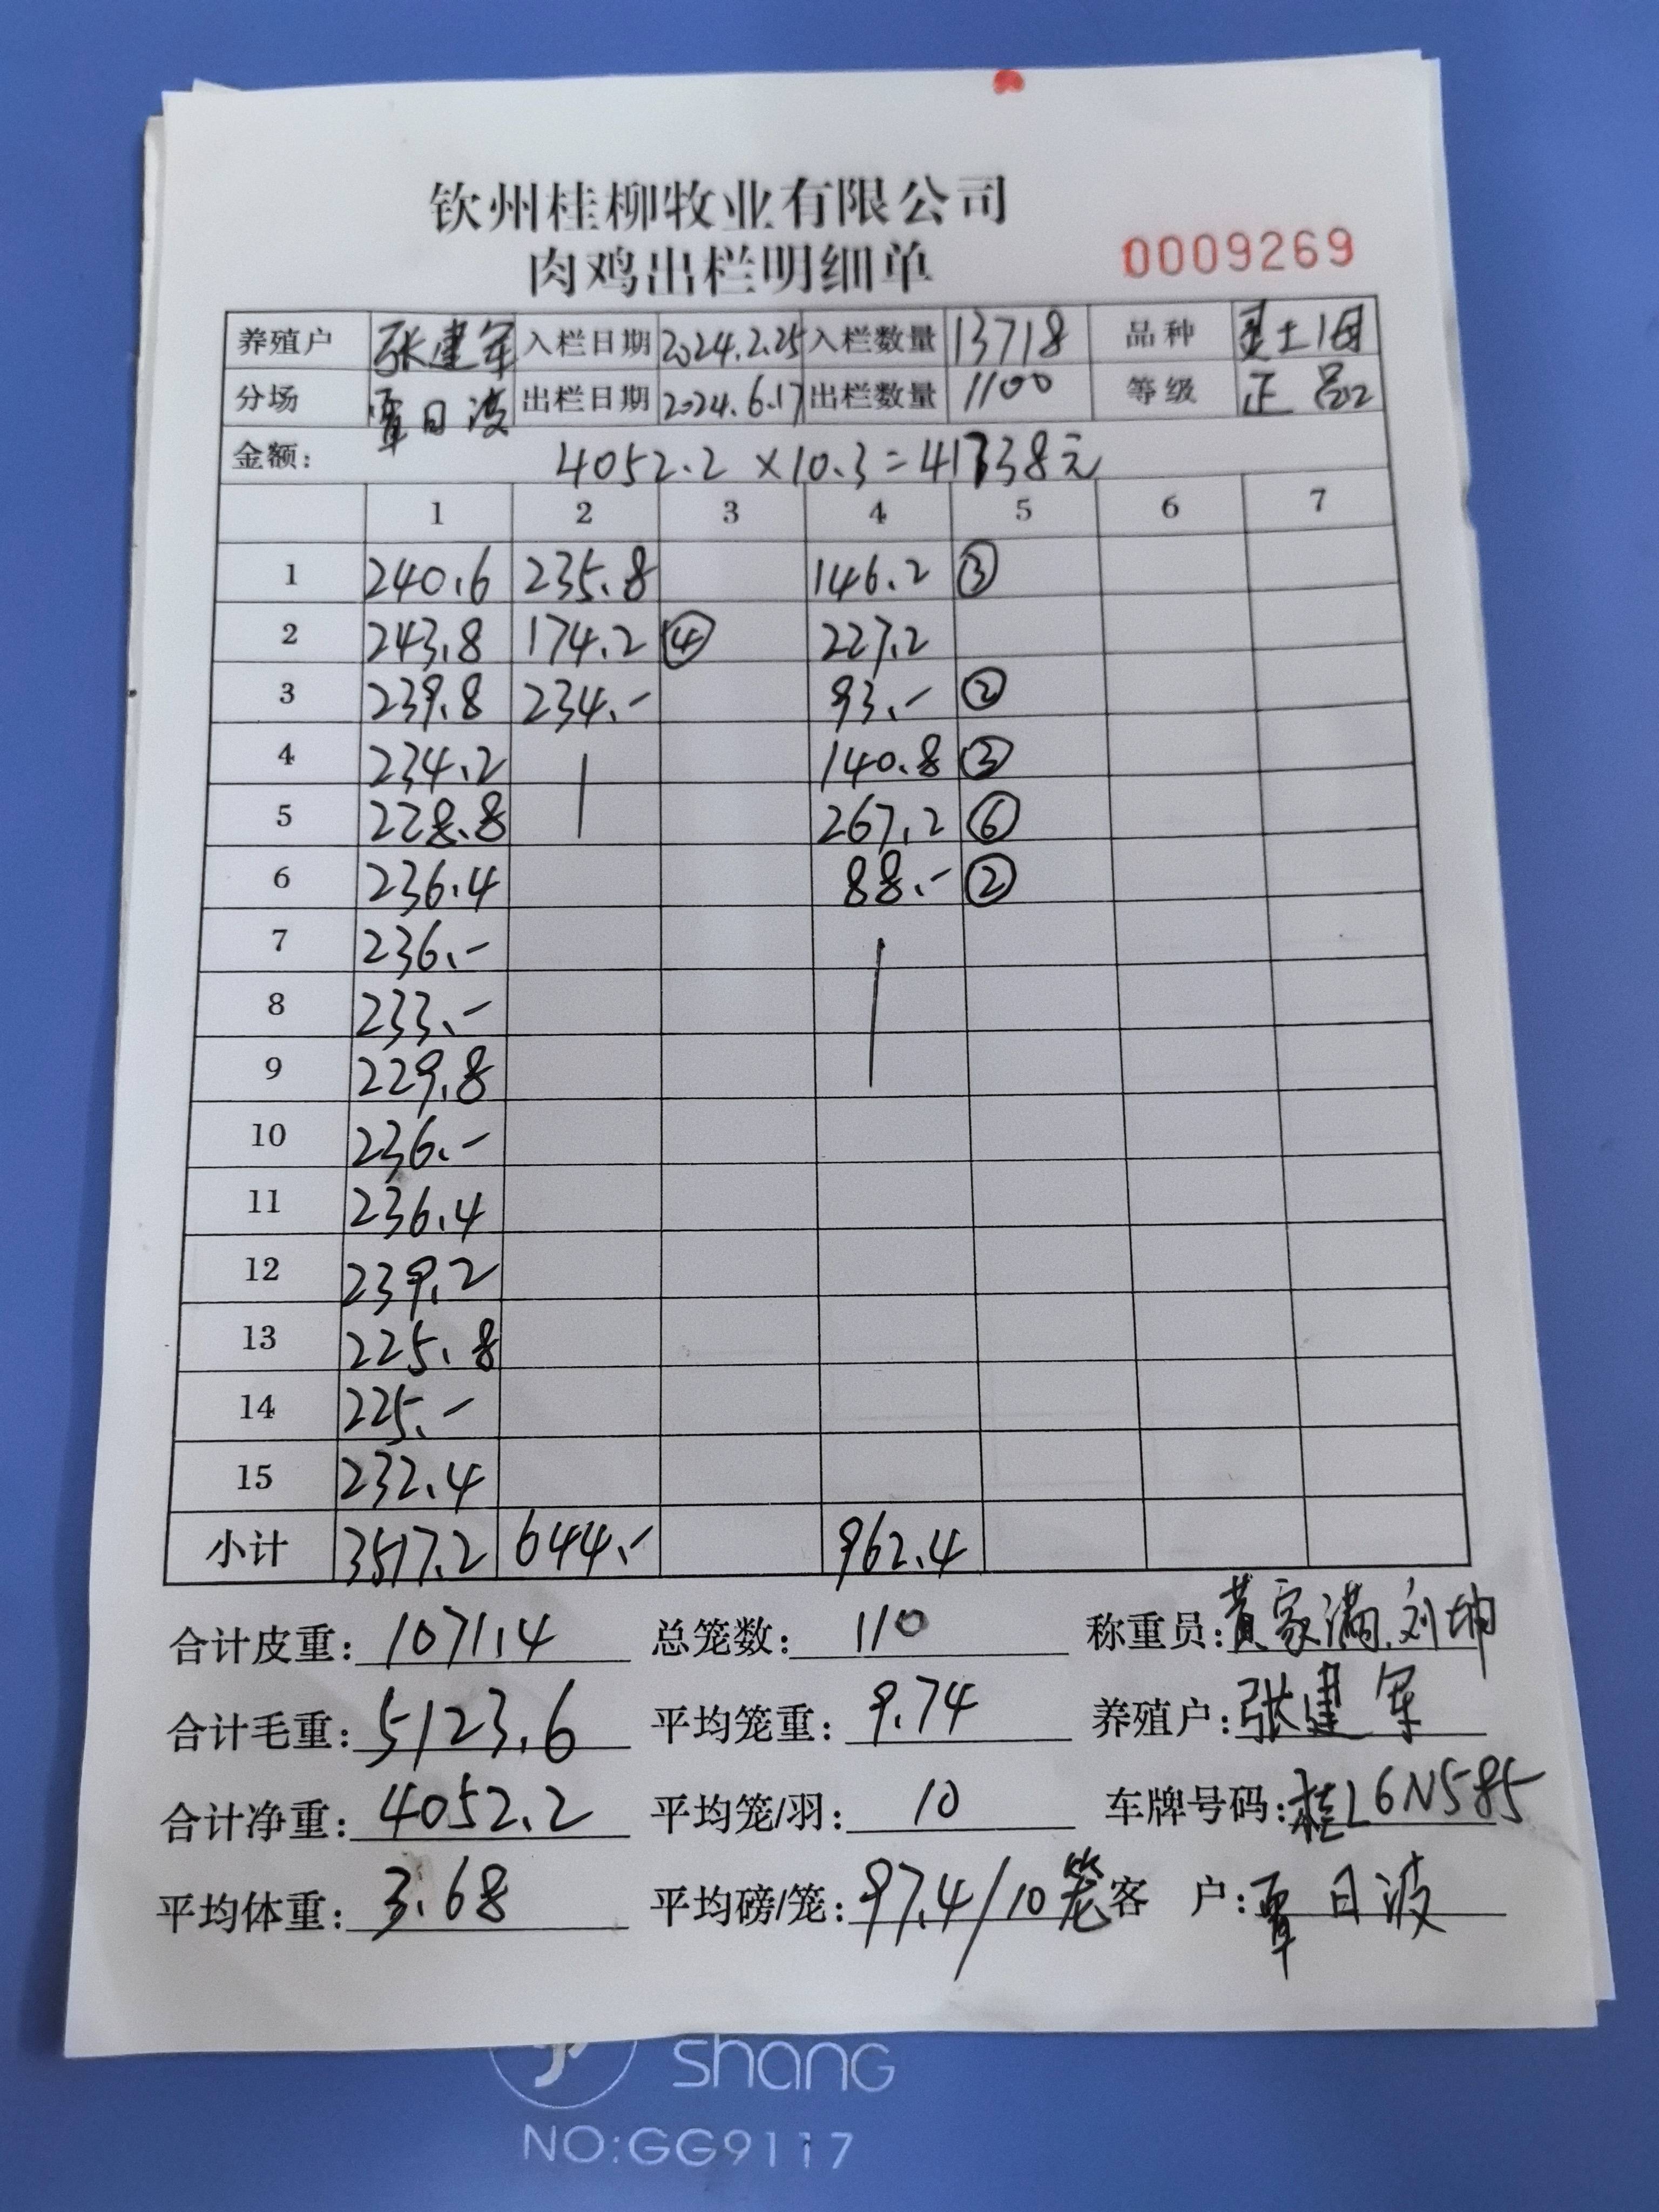 钦州桂柳牧业有限公司
肉鸡出栏明细单
0009269
养殖户 张建军 入栏日期 2024.2.25 入栏数量 13718 品种
分场 覃日波 出栏日期 2024.6.17 出栏数量 1100 等级 正品
金额: 4052.2 ×10.3=41738元
1 2 3 4 5 6 7
1 240.6 235.8 146.2 ③
2 243.8 174.2 ④ 227.2
3 239.8 234.- 93.- ②
4 234.2 140.8 ③
5 228.8 267.2 ⑥
6 236.4 88.- ②
7 236.-
8 233.-
9 229.8
10 236.-
11 236.4
12 239.2
13 225.8
14 225.-
15 232.4
小计 3517.2 644.- 962.4
合计皮重: 1071.4 总笼数: 110 称重员: 黄家满.刘坤
合计毛重: 5123.6 平均笼重: 9.74 养殖户: 张建军
合计净重: 4052.2 平均笼/羽: 10 车牌号码: 桂L6N585
平均体重: 3.68 平均磅/笼: 97.4/10笼 客 户: 覃日波
shang
NO:GG9117